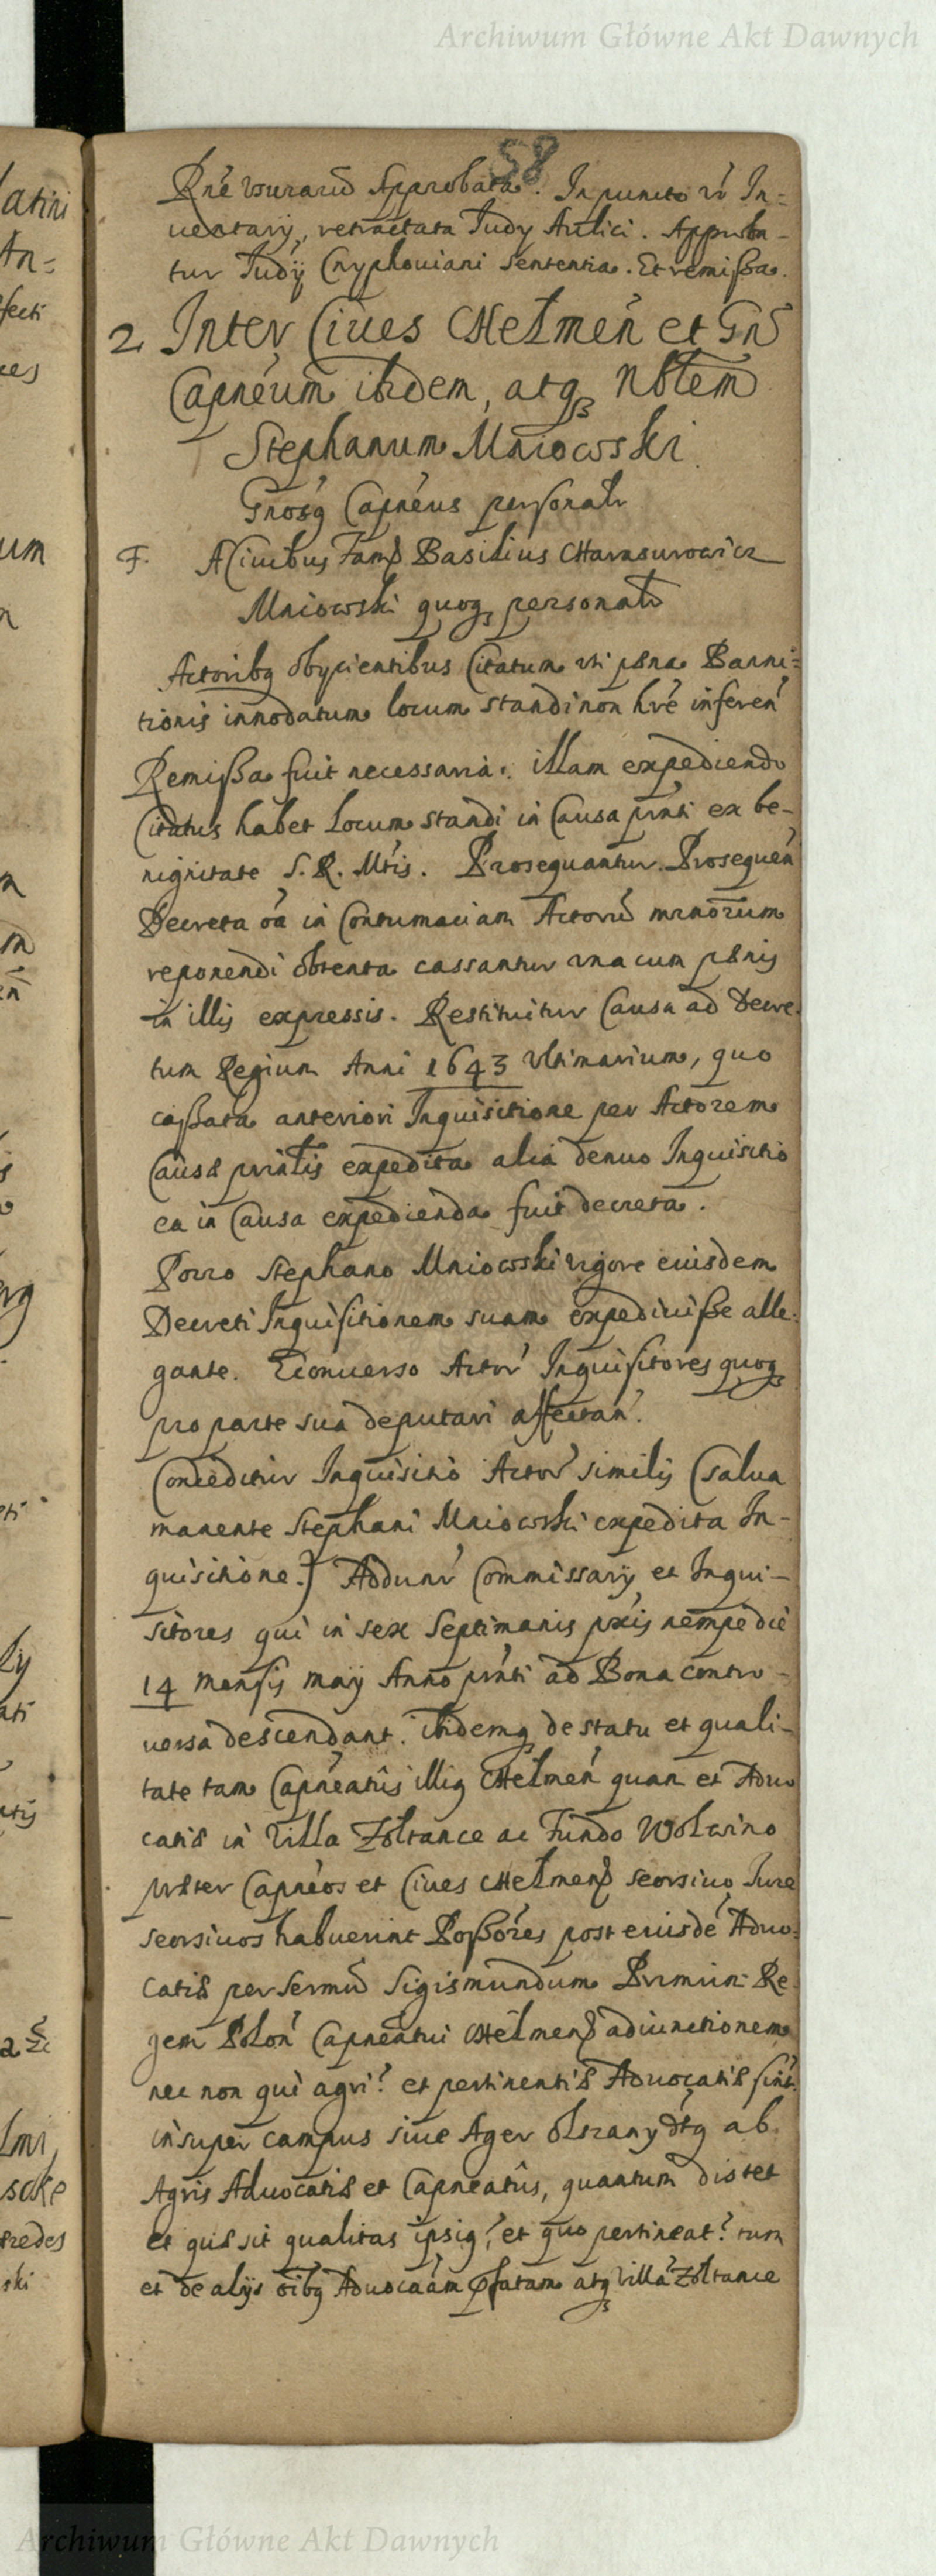 Archiwum Główne Akt Dawnych
58
Rne usurarū Approbata. In puncto vō In=
uentarij, retractata Iudij Aulici. Approba-
tur Iudij Cnyphouiani sententia. Et remißa.
2. Inter Ciues CHełmeń et Gn̄
Capneum ibidem, atq3 Nbłem
Stephanum Mniowski
Gnosq Capneus personalr
F. A Ciuibus Fam Basilius CHarasurowicz
Mniowski quoq3 personalr
Actoribq obijcientibus Citatum uti pæna Banni=
tionis innodatum locum standi non hre inferen
Remißa fuit necessaria. illam expediendo
Citatus habet Locum standi in Causa prnti ex be-
nignitate S. R. Mtis. Prosequantur. Prosequen
Decreta oa in Contumaciam Actorū
reponendi obtenta cassantur una cum pænis
in illis expressis. Restituitur Causa ad Decre-
tum Regium Anni 1643 Ultimarium, quo
caßata anteriori Inquisitione per Actorem
Causæ prīntis expedita alia denuo Inquisitio
ea in Causa expedienda fuit decreta.
Porro Stephano Mniowski vigore eiusdem
Decreti Inquisitionem suam expediuiße alle-
gante. Econuerso Actor Inquisitores quoq3
pro parte sua deputari affectan.
Conceditur Inquisitio Actor similis (salua
manente Stephani Mniowski expedita In-
quisitione.) Addunr Commissarij et Inqui-
sitores qui in sex Septimanis pxis nempe die
14 Mensis Maij Anno prnti ad Bona contro-
uersa descendant. Ibidemq de statu et quali-
tate tam Capneatûs illiq CHełmen quam et Aduo
catiæ in Villa Żółtance ac Fundo Wolwino
præter Capneos et Ciues CHełmen seorsiuo Iure
seorsiuos habuerint Poßores post eiusde Aduo-
catiæ per Sermū Sigismundum Primum Re-
gem Polon Capneatui CHełmen adiunctionem
nec non qui agri? et pertinentiæ Aduocatiæ sint.
insuper campus siue Ager Olszany dtq ab
Agris Aduocatiæ et Capneatûs, quantum distet
et quæ sit qualitas ipsiq? et quo pertineat? tum
et de alijs oibq Aduocaām pfatam atq3 Villā Żółtance
Archiwum Główne Akt Dawnych